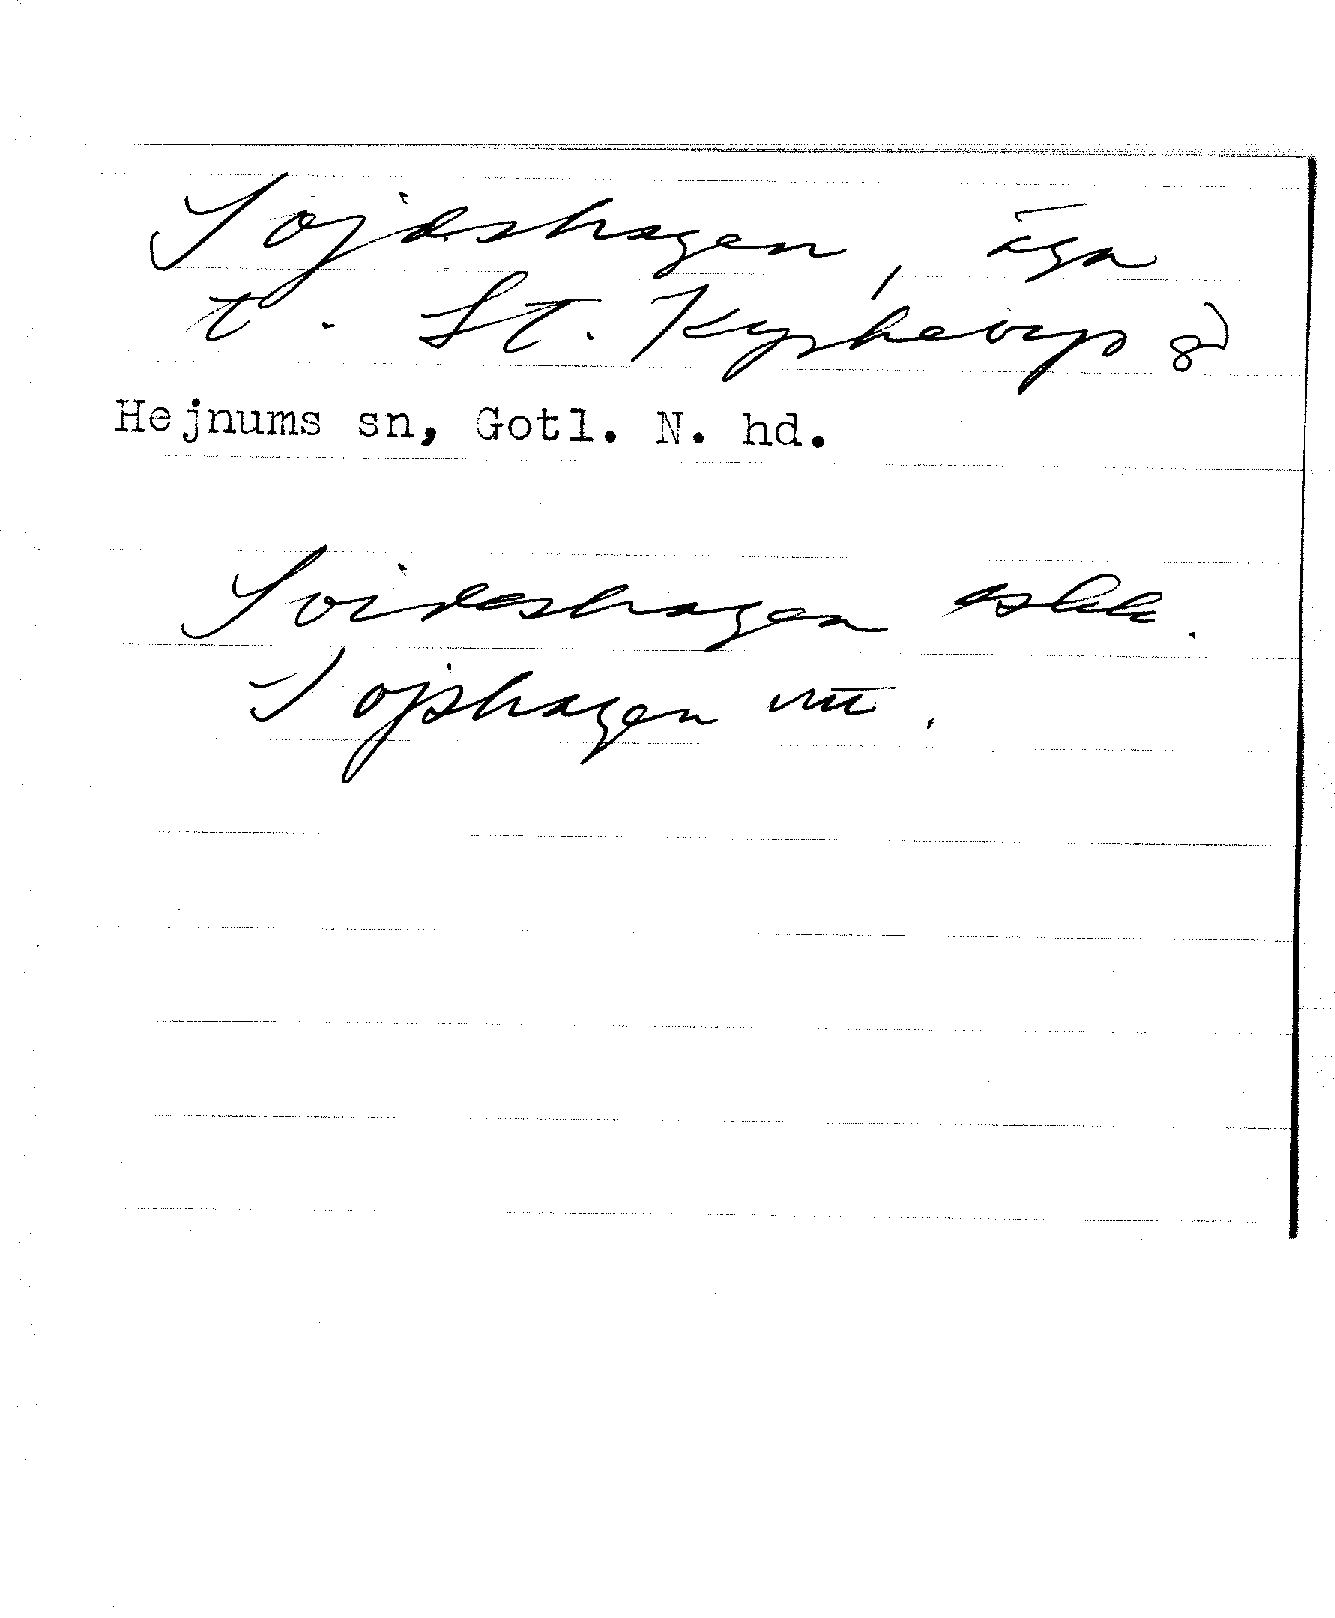 Sojdshagen, äga
t. St. Kyrkebys
Hejnums sn, Gotl. N. hd.
Soideshagen
Sojshagen